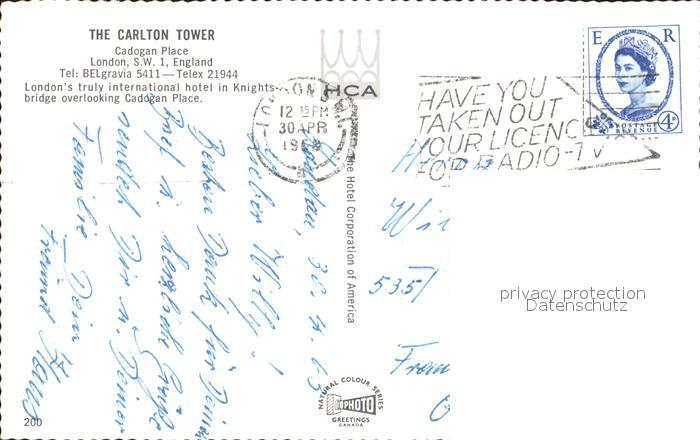 THE CARLTON TOWER
Cadogan Place
London, S.W. 1, England
Tel: BELgravia 5411—Telex 21944
London's truly international hotel in Knights-
bridge overlooking Cadogan Place.
HCA
The Hotel Corporation of America
LONDON
12 15 PM
30 APR
HAVE YOU
TAKEN OUT
YOUR LICENCE
FOR RADIO-TV
E R
POSTAGE
REVENUE
4D
London, 30.4.63
Lieber Willy!
Besten Dank für Deinen
Brief u. herzliche Grüße
sendet Dir u. Deiner
Familie Dein
Freund Hans
Herrn
535
privacy protection
Datenschutz
NATURAL COLOUR SERIES
PHOTO
GREETINGS
CANADA
200